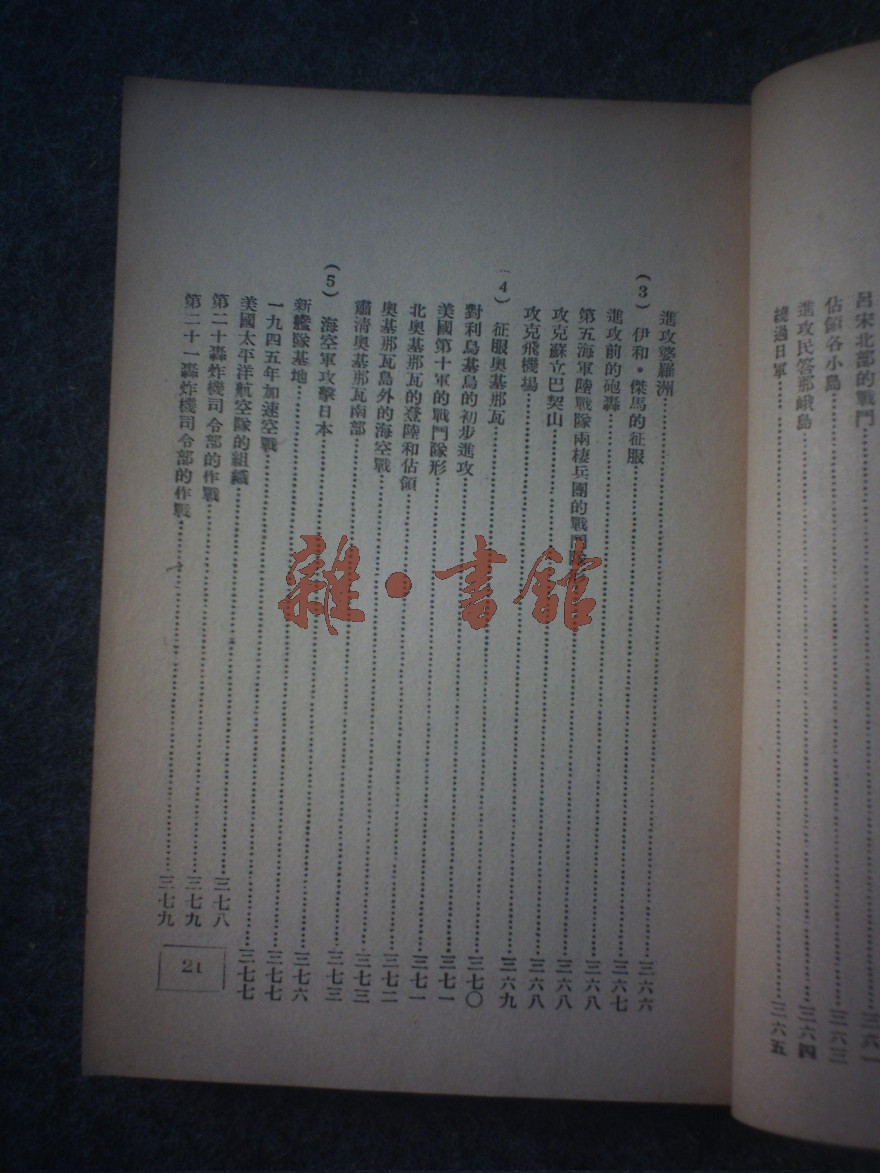 呂宋北部的戰鬥……三六一
佔領各小島……三六三
進攻民答那峨島……三六四
繞過日軍……三六五
進攻婆羅洲……三六六
(3) 伊和・傑馬的征服……三六七
進攻前的砲轟……三六八
第五海軍陸戰隊兩棲兵團的戰鬥隊……三六八
攻克蘇立巴契山……三六八
攻克飛機場……三六九
(4) 征服奧基那瓦……三七〇
對利烏基島的初步進攻……三七一
美國第十軍的戰鬥隊形……三七一
北奧基那瓦的登陸和佔領……三七二
奧基那瓦島外的海空戰……三七三
肅清奧基那瓦南部……三七三
(5) 海空軍攻擊日本……三七六
新艦隊基地……三七七
一九四五年加速空戰……三七七
美國太平洋航空隊的組織……三七八
第二十轟炸機司令部的作戰……三七九
第二十一轟炸機司令部的作戰……三七九
21
雜・書館